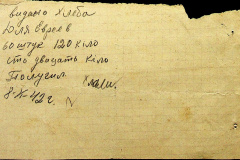 видано хлеба
Для Евреев
60 штук 120 кіло
сто двацать кело
Получил
8-X-42 г.